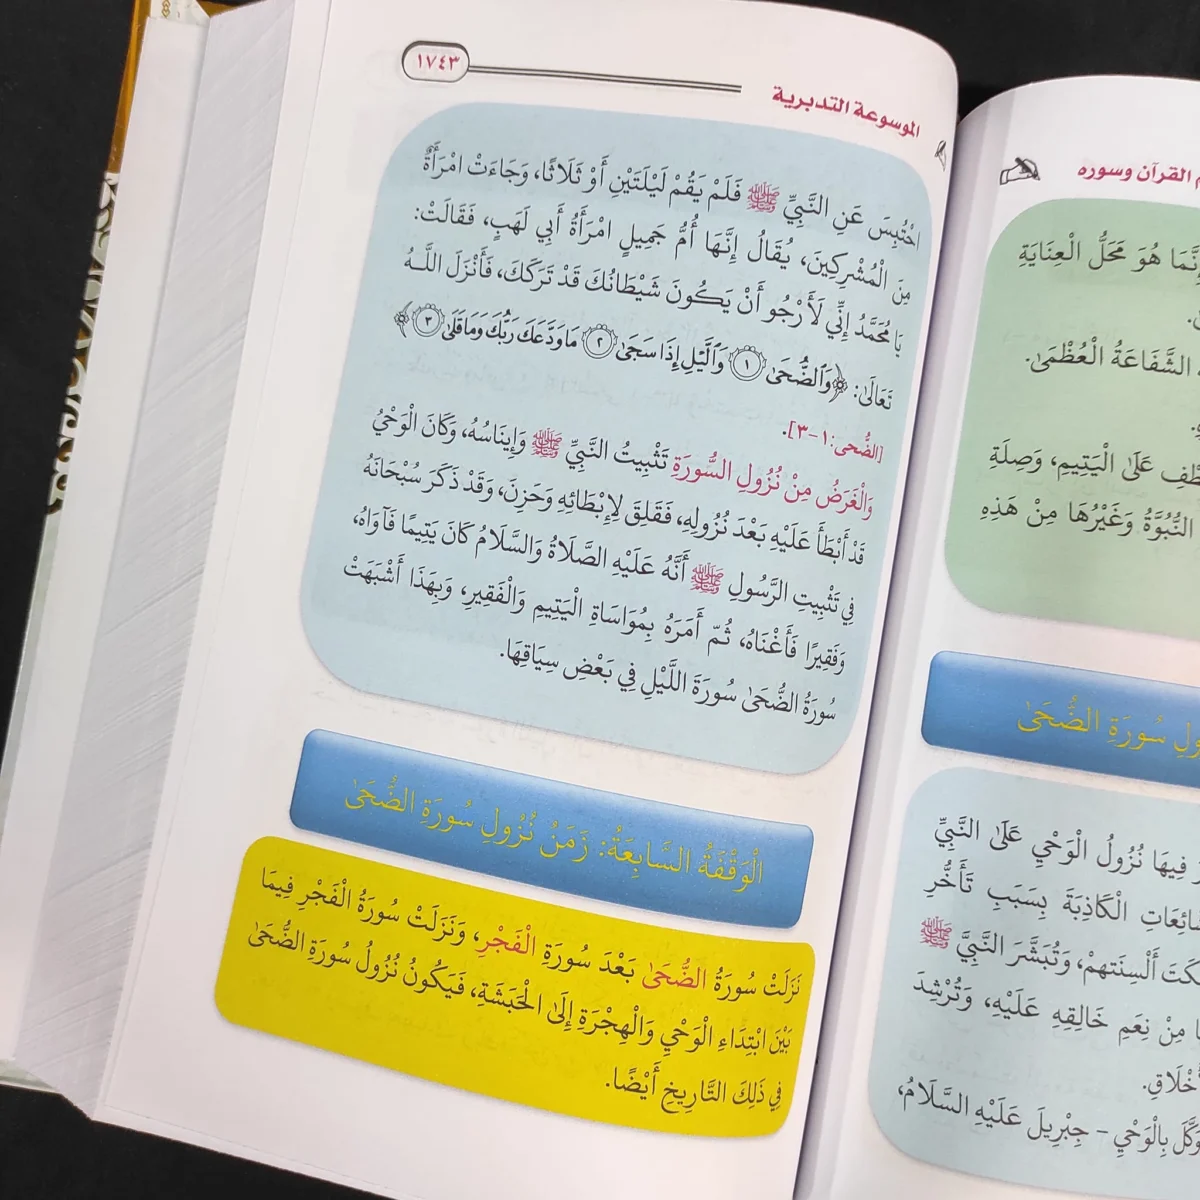 م القرآن وسوره
نَّمَا هُوَ مَحَلُّ الْعِنَايَةِ
الشَّفَاعَةُ الْعُظْمَىٰ.
عَلَىٰ الْيَتِيمِ، وَصِلَةِ
النُّبُوَّةُ وَغَيْرُهَا مِنْ هَذِهِ
سُورَةِ الضُّحَىٰ
فِيهَا نُزُولُ الْوَحْيِ عَلَىٰ النَّبِيِّ
الْكَاذِبَةَ بِسَبَبِ تَأَخُّرِ
أَلْسِنَتهمْ، وَتُبَشِّرَ النَّبِيَّ ﷺ
مِنْ نِعَمِ خَالِقِهِ عَلَيْهِ، وَتُرْشِدَ
بِالْوَحْيِ – جِبْرِيلَ عَلَيْهِ السَّلَامُ،
الموسوعة التدبرية
١٧٤٣
احْتُبِسَ عَنِ النَّبِيِّ ﷺ فَلَمْ يَقُمْ لَيْلَتَيْنِ أَوْ ثَلَاثًا، وَجَاءَتْ امْرَأَةٌ
مِنَ الْمُشْرِكِينَ، يُقَالُ إِنَّهَا أُمُّ جَمِيلٍ امْرَأَةُ أَبِي لَهَبٍ، فَقَالَتْ:
يَا مُحَمَّدُ إِنِّي لَأَرْجُو أَنْ يَكُونَ شَيْطَانُكَ قَدْ تَرَكَكَ، فَأَنْزَلَ اللَّهُ
تَعَالَىٰ: ﴿وَٱلضُّحَىٰ ١ وَٱلَّيْلِ إِذَا سَجَىٰ ٢ مَا وَدَّعَكَ رَبُّكَ وَمَا قَلَىٰ ٣﴾
[الضُّحى: ١-٣].
وَالْغَرَضُ مِنْ نُزُولِ السُّورَةِ تَثْبِيتُ النَّبِيِّ ﷺ وَإِينَاسُهُ، وَكَانَ الْوَحْيُ
قَدْ أَبْطَأَ عَلَيْهِ بَعْدَ نُزُولِهِ، فَقَلِقَ لِإِبْطَائِهِ وَحَزِنَ، وَقَدْ ذَكَرَ سُبْحَانَهُ
فِي تَثْبِيتِ الرَّسُولِ ﷺ أَنَّهُ عَلَيْهِ الصَّلَاةُ وَالسَّلَامُ كَانَ يَتِيمًا فَآوَاهُ،
وَفَقِيرًا فَأَغْنَاهُ، ثُمّ أَمَرَهُ بِمُوَاسَاةِ الْيَتِيمِ وَالْفَقِيرِ، وَبِهَذَا أَشْبَهَتْ
سُورَةُ الضُّحَىٰ سُورَةَ اللَّيْلِ فِي بَعْضِ سِيَاقِهَا.
الْوَقْفَةُ السَّابِعَةُ: زَمَنُ نُزُولِ سُورَةِ الضُّحَىٰ
نَزَلَتْ سُورَةُ الضُّحَىٰ بَعْدَ سُورَةِ الْفَجْرِ، وَنَزَلَتْ سُورَةُ الْفَجْرِ فِيمَا
بَيْنَ ابْتِدَاءِ الْوَحْيِ وَالْهِجْرَةِ إِلَىٰ الْحَبَشَةِ، فَيَكُونُ نُزُولُ سُورَةِ الضُّحَىٰ
فِي ذَلِكَ التَّارِيخِ أَيْضًا.